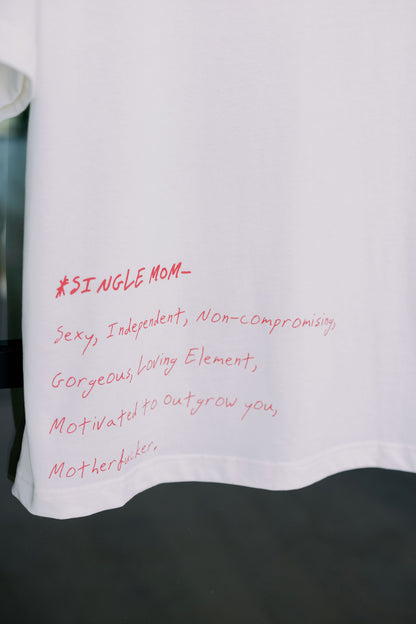 *SINGLE MOM-
Sexy, Independent, Non-compromising,
Gorgeous, Loving Element,
Motivated to outgrow you,
Motherfucker.